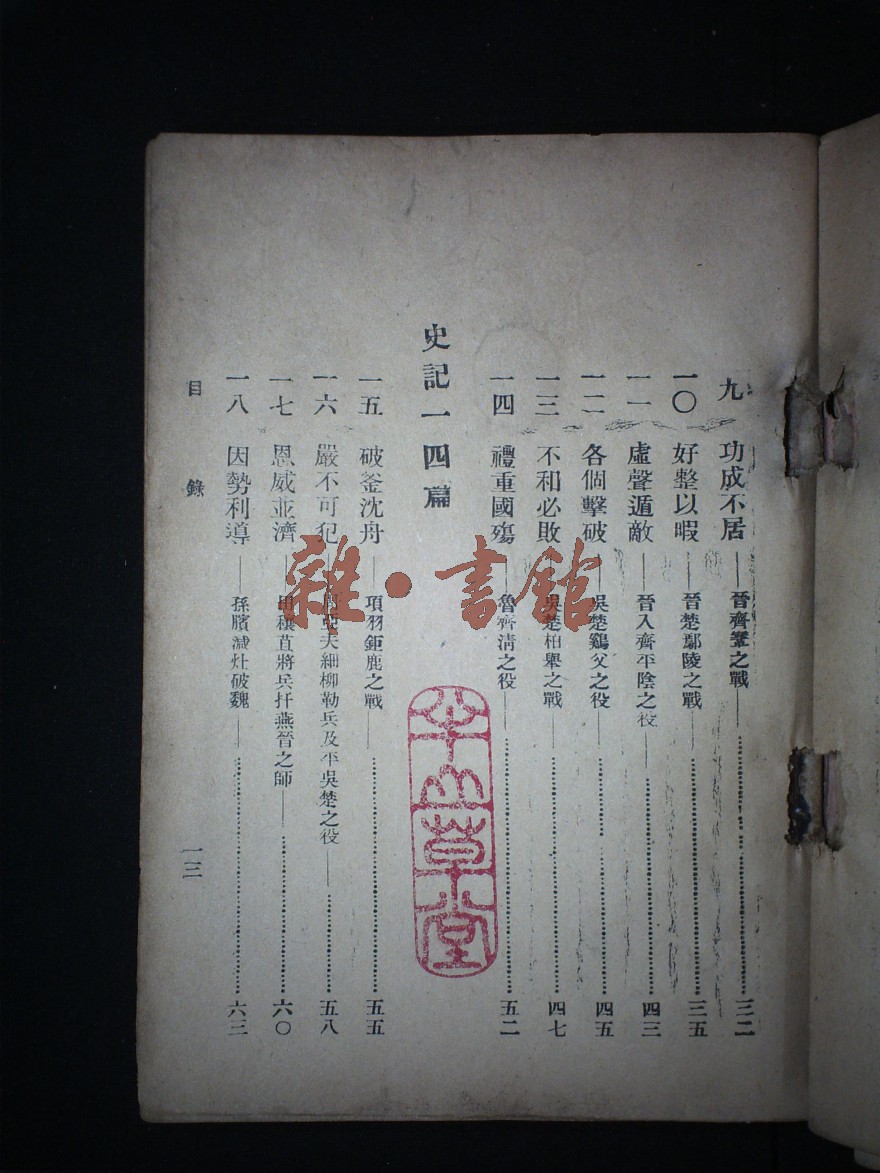 九 功成不居——晉齊鞌之戰——三二
一〇 好整以暇——晉楚鄢陵之戰——三五
一一 虛聲遁敵——晉入齊平陰之役——四三
一二 各個擊破——吳楚鷄父之役——四五
一三 不和必敗——吳楚柏舉之戰——四七
一四 禮重國殤——魯齊清之役——五二
史記一四篇
一五 破釜沈舟——項羽鉅鹿之戰——五五
一六 嚴不可犯 亞夫細柳勒兵及平吳楚之役——五八
一七 恩威並濟 穰苴將兵扞燕晉之師——六〇
一八 因勢利導——孫臏減灶破魏——六三
目錄 一三
雜·書館
半山草堂